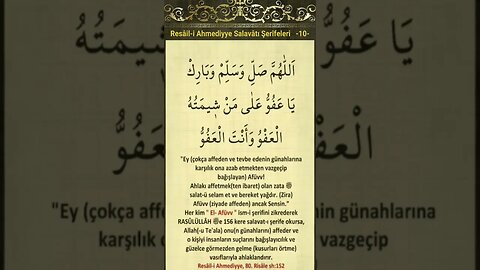 Resâil-i Ahmediyye Salavâtı Şerîfeleri -10-
اَللّٰهُمَّ صَلِّ وَسَلِّمْ وَبَارِكْ
يَا عَفُوُّ عَلٰى مَنْ شِيمَتُهُ
الْعَفْوُ وَأَنْتَ الْعَفُوُّ
"Ey (çokça affeden ve tevbe edenin günahlarına
karşılık ona azab etmekten vazgeçip
bağışlayan) Afüvv!
Ahlakı affetmek(ten ibaret) olan zata ﷺ
salat-ü selam et ve bereket yağdır. (Zira)
Afüvv (ziyade affeden) ancak Sensin."
Her kim " El- Afüvv " ism-i şerifini zikrederek
RASÛLÜLLÂH ﷺe 156 kere salavat-ı şerife okursa,
Allah(-u Te'ala) onu(n günahlarını) affeder ve
o kişiyi insanların suçlarını bağışlayıcılık ve
güzelce görmezden gelme (kusurları örtme)
vasıflarıyla ahlaklandırır.
Resâil-i Ahmediyye, 80. Risâle sh:152